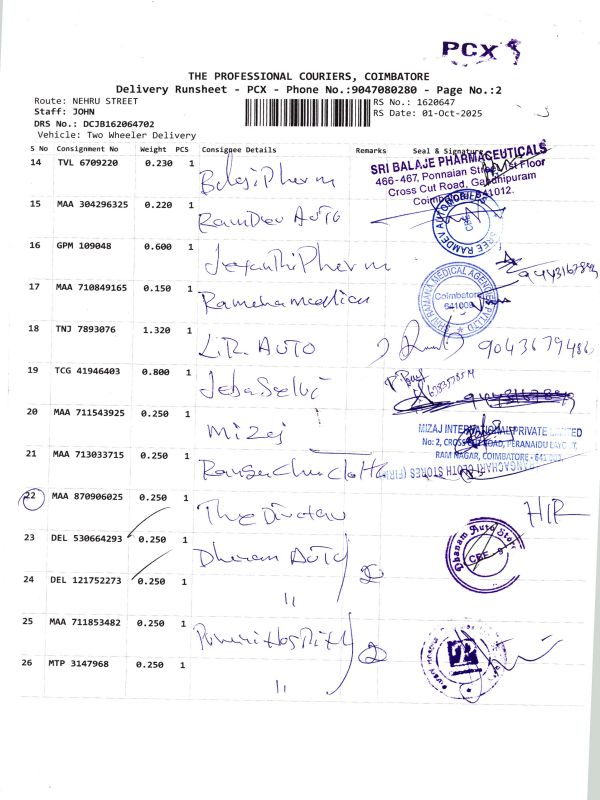 PCX
THE PROFESSIONAL COURIERS, COIMBATORE
Delivery Runsheet - PCX - Phone No.:9047080280 - Page No.:2
Route: NEHRU STREET
RS No.: 1620647
Staff: JOHN
RS Date: 01-Oct-2025
DRS No.: DCJB162064702
Vehicle: Two Wheeler Delivery
S No Consignment No Weight PCS Consignee Details Remarks Seal & Signature
14 TVL 6709220 0.230 1 Balaji Pharm
SRI BALAJE PHARMACEUTICALS
466-467, Ponnaian Street, 1st Floor
Cross Cut Road, Gandhipuram
Coimbatore-641012.
15 MAA 304296325 0.220 1 RamDev AUTO
SREE RAMDEV AUTOMOBILES
CBE
16 GPM 109048 0.600 1 Jeyanthi Pharm
17 MAA 710849165 0.150 1 Ramana medical
SHRI RAMANA MEDICAL AGENCIES PVT LTD
Coimbatore
18 TNJ 7893076 1.320 1 L.R. AUTO 9043679486
19 TCG 41946403 0.800 1 Jeba Selvi
20 MAA 711543925 0.250 1 Mizaj
MIZAJ INTERNATIONAL PRIVATE LIMITED
No: 2, CROSS CUT ROAD, PERANAIDU LAYOUT,
RAM NAGAR, COIMBATORE - 641 009.
21 MAA 713033715 0.250 1
RANGACHARI CLOTH STORES (FIRM)
22 MAA 870906025 0.250 1 The
23 DEL 530664293 0.250 1 Dhanam AUTO
Dhanam Auto Stores
CBE - 9
24 DEL 121752273 0.250 1 "
2
25 MAA 711853482 0.250 1
2
26 MTP 3147968 0.250 1 "